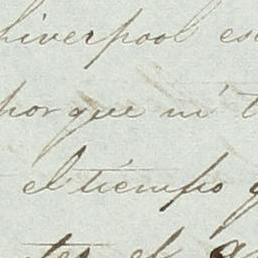 Liverpool es
porque ni t
el tiempo q
tes el a